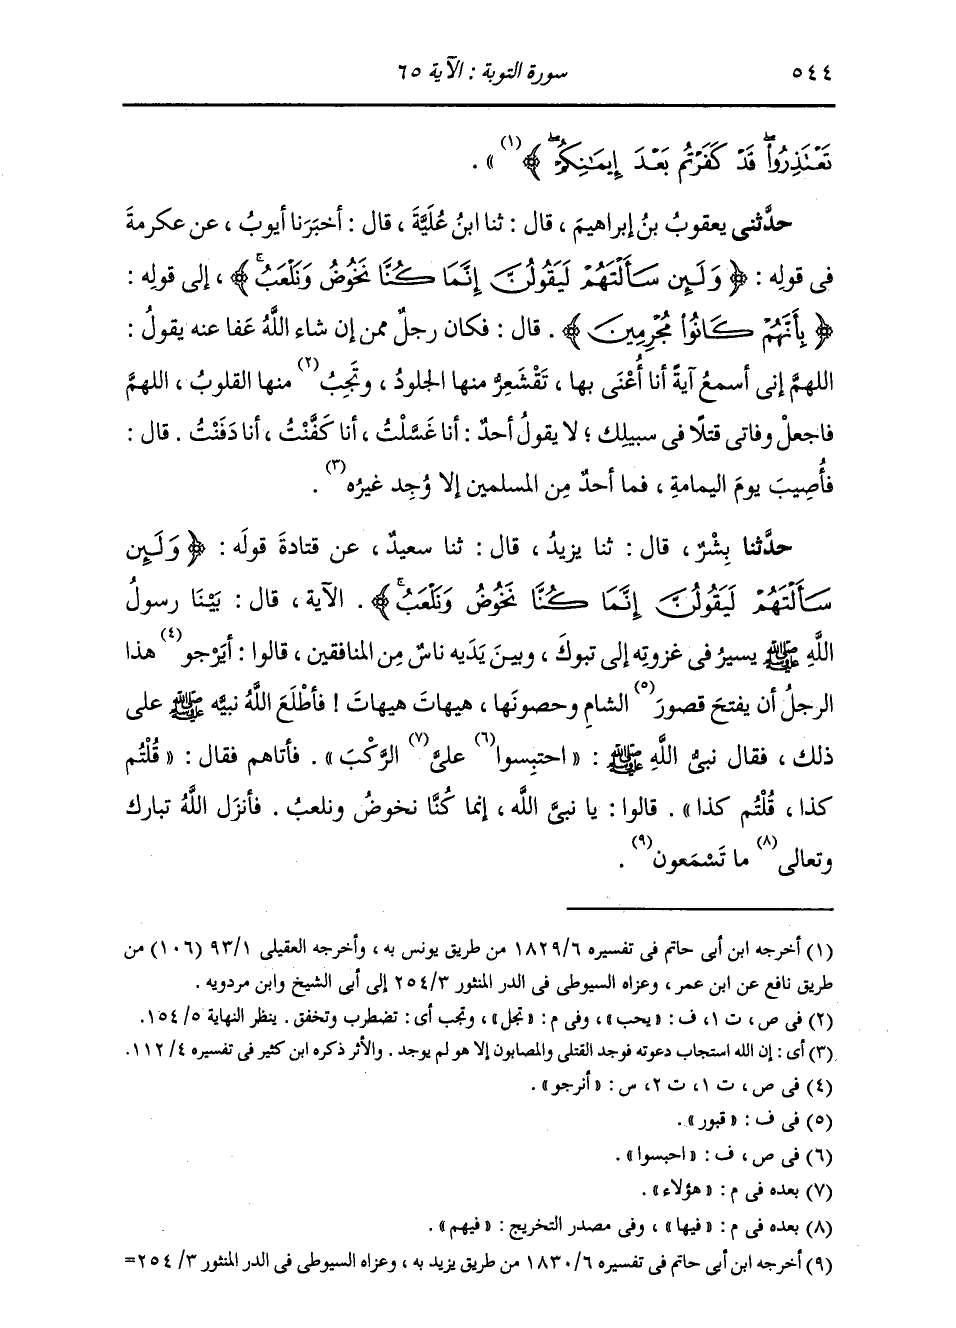 ٥٤٤ سورة التوبة : الآية ٦٥
تَعْتَذِرُواْ قَدْ كَفَرْتُم بَعْدَ إِيمَٰنِكُمْ ﴾(١)» .
حدَّثنى يعقوبُ بنُ إبراهيمَ ، قال : ثنا ابنُ عُلَيَّةَ ، قال : أخبَرَنا أيوبُ ، عن عكرمةَ
فى قولِه : ﴿ وَلَئِن سَأَلْتَهُمْ لَيَقُولُنَّ إِنَّمَا كُنَّا نَخُوضُ وَنَلْعَبُ ﴾ ، إلى قولِه :
﴿ بِأَنَّهُمْ كَانُواْ مُجْرِمِينَ ﴾ . قال : فكان رجلٌ ممن إن شاء اللَّهُ عَفا عنه يقولُ :
اللهمَّ إنى أسمعُ آيةً أنا أُعْنَى بها ، تَقْشَعِرُّ منها الجلودُ ، وتَجِبُ(٢) منها القلوبُ ، اللهمَّ
فاجعلْ وفاتى قتلًا فى سبيلِك ؛ لا يقولُ أحدٌ : أنا غَسَّلْتُ ، أنا كَفَّنْتُ ، أنا دَفَنْتُ . قال :
فأُصِيبَ يومَ اليمامةِ ، فما أحدٌ مِن المسلمين إلا وُجِد غيرُه(٣) .
حدَّثنا بِشْرٌ ، قال : ثنا يزيدُ ، قال : ثنا سعيدٌ ، عن قتادةَ قولَه : ﴿ وَلَئِن
سَأَلْتَهُمْ لَيَقُولُنَّ إِنَّمَا كُنَّا نَخُوضُ وَنَلْعَبُ ﴾ . الآية ، قال : بَيْنَا رسولُ
اللَّهِ ﷺ يسيرُ فى غزوتِه إلى تبوكَ ، وبينَ يَدَيه ناسٌ مِن المنافقين ، قالوا : أيَرْجو(٤) هذا
الرجلُ أن يفتحَ قصورَ(٥) الشامِ وحصونَها ، هيهاتَ هيهاتَ ! فأطْلَعَ اللَّهُ نبيَّه ﷺ على
ذلك ، فقال نبىُّ اللَّهِ ﷺ : « احتبِسوا(٦) علىَّ(٧) الرَّكْبَ» . فأتاهم فقال : « قُلْتُم
كذا ، قُلْتُم كذا» . قالوا : يا نبىَّ اللَّه ، إنما كُنَّا نخوضُ ونلعبُ . فأنزَل اللَّهُ تبارك
وتعالى(٨) ما تَسْمَعون(٩) .
(١) أخرجه ابن أبى حاتم فى تفسيره ١٨٢٩/٦ من طريق يونس به ، وأخرجه العقيلى ٩٣/١ (١٠٦) من
طريق نافع عن ابن عمر ، وعزاه السيوطى فى الدر المنثور ٢٥٤/٣ إلى أبى الشيخ وابن مردويه .
(٢) فى ص ، ت ١، ف : «يحب» ، وفى م : «تجل» ، وتجب أى : تضطرب وتخفق . ينظر النهاية ٥/ ١٥٤.
(٣) أى : إن الله استجاب دعوته فوجد القتلى والمصابون إلا هو لم يوجد . والأثر ذكره ابن كثير فى تفسيره ٤/ ١١٢.
(٤) فى ص ، ت ١، ت ٢، س : «أنرجو» .
(٥) فى ف : « قبور» .
(٦) فى ص ، ف : «احبسوا» .
(٧) بعده فى م : «هؤلاء» .
(٨) بعده فى م : «فيها» ، وفى مصدر التخريج : «فيهم» .
(٩) أخرجه ابن أبى حاتم فى تفسيره ١٨٣٠/٦ من طريق يزيد به ، وعزاه السيوطى فى الدر المنثور ٣/ ٢٥٤=